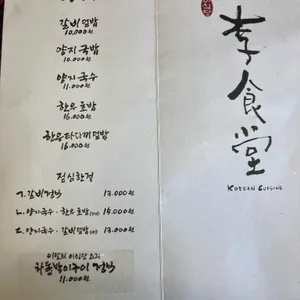 갈비덮밥
10.000원
양지국밥
10.000원
양지국수
11.000원
한우초밥
15.000원
한우타다끼덮밥
16.000원
점심한정
ㄱ. 갈비정식 13.000원
ㄴ. 양지국수·한우초밥 15.000원
ㄷ. 양지국수·갈비덮밥 13.000원
차돌박이구이 정식
11.000원
李食堂
KOREAN CUISINE